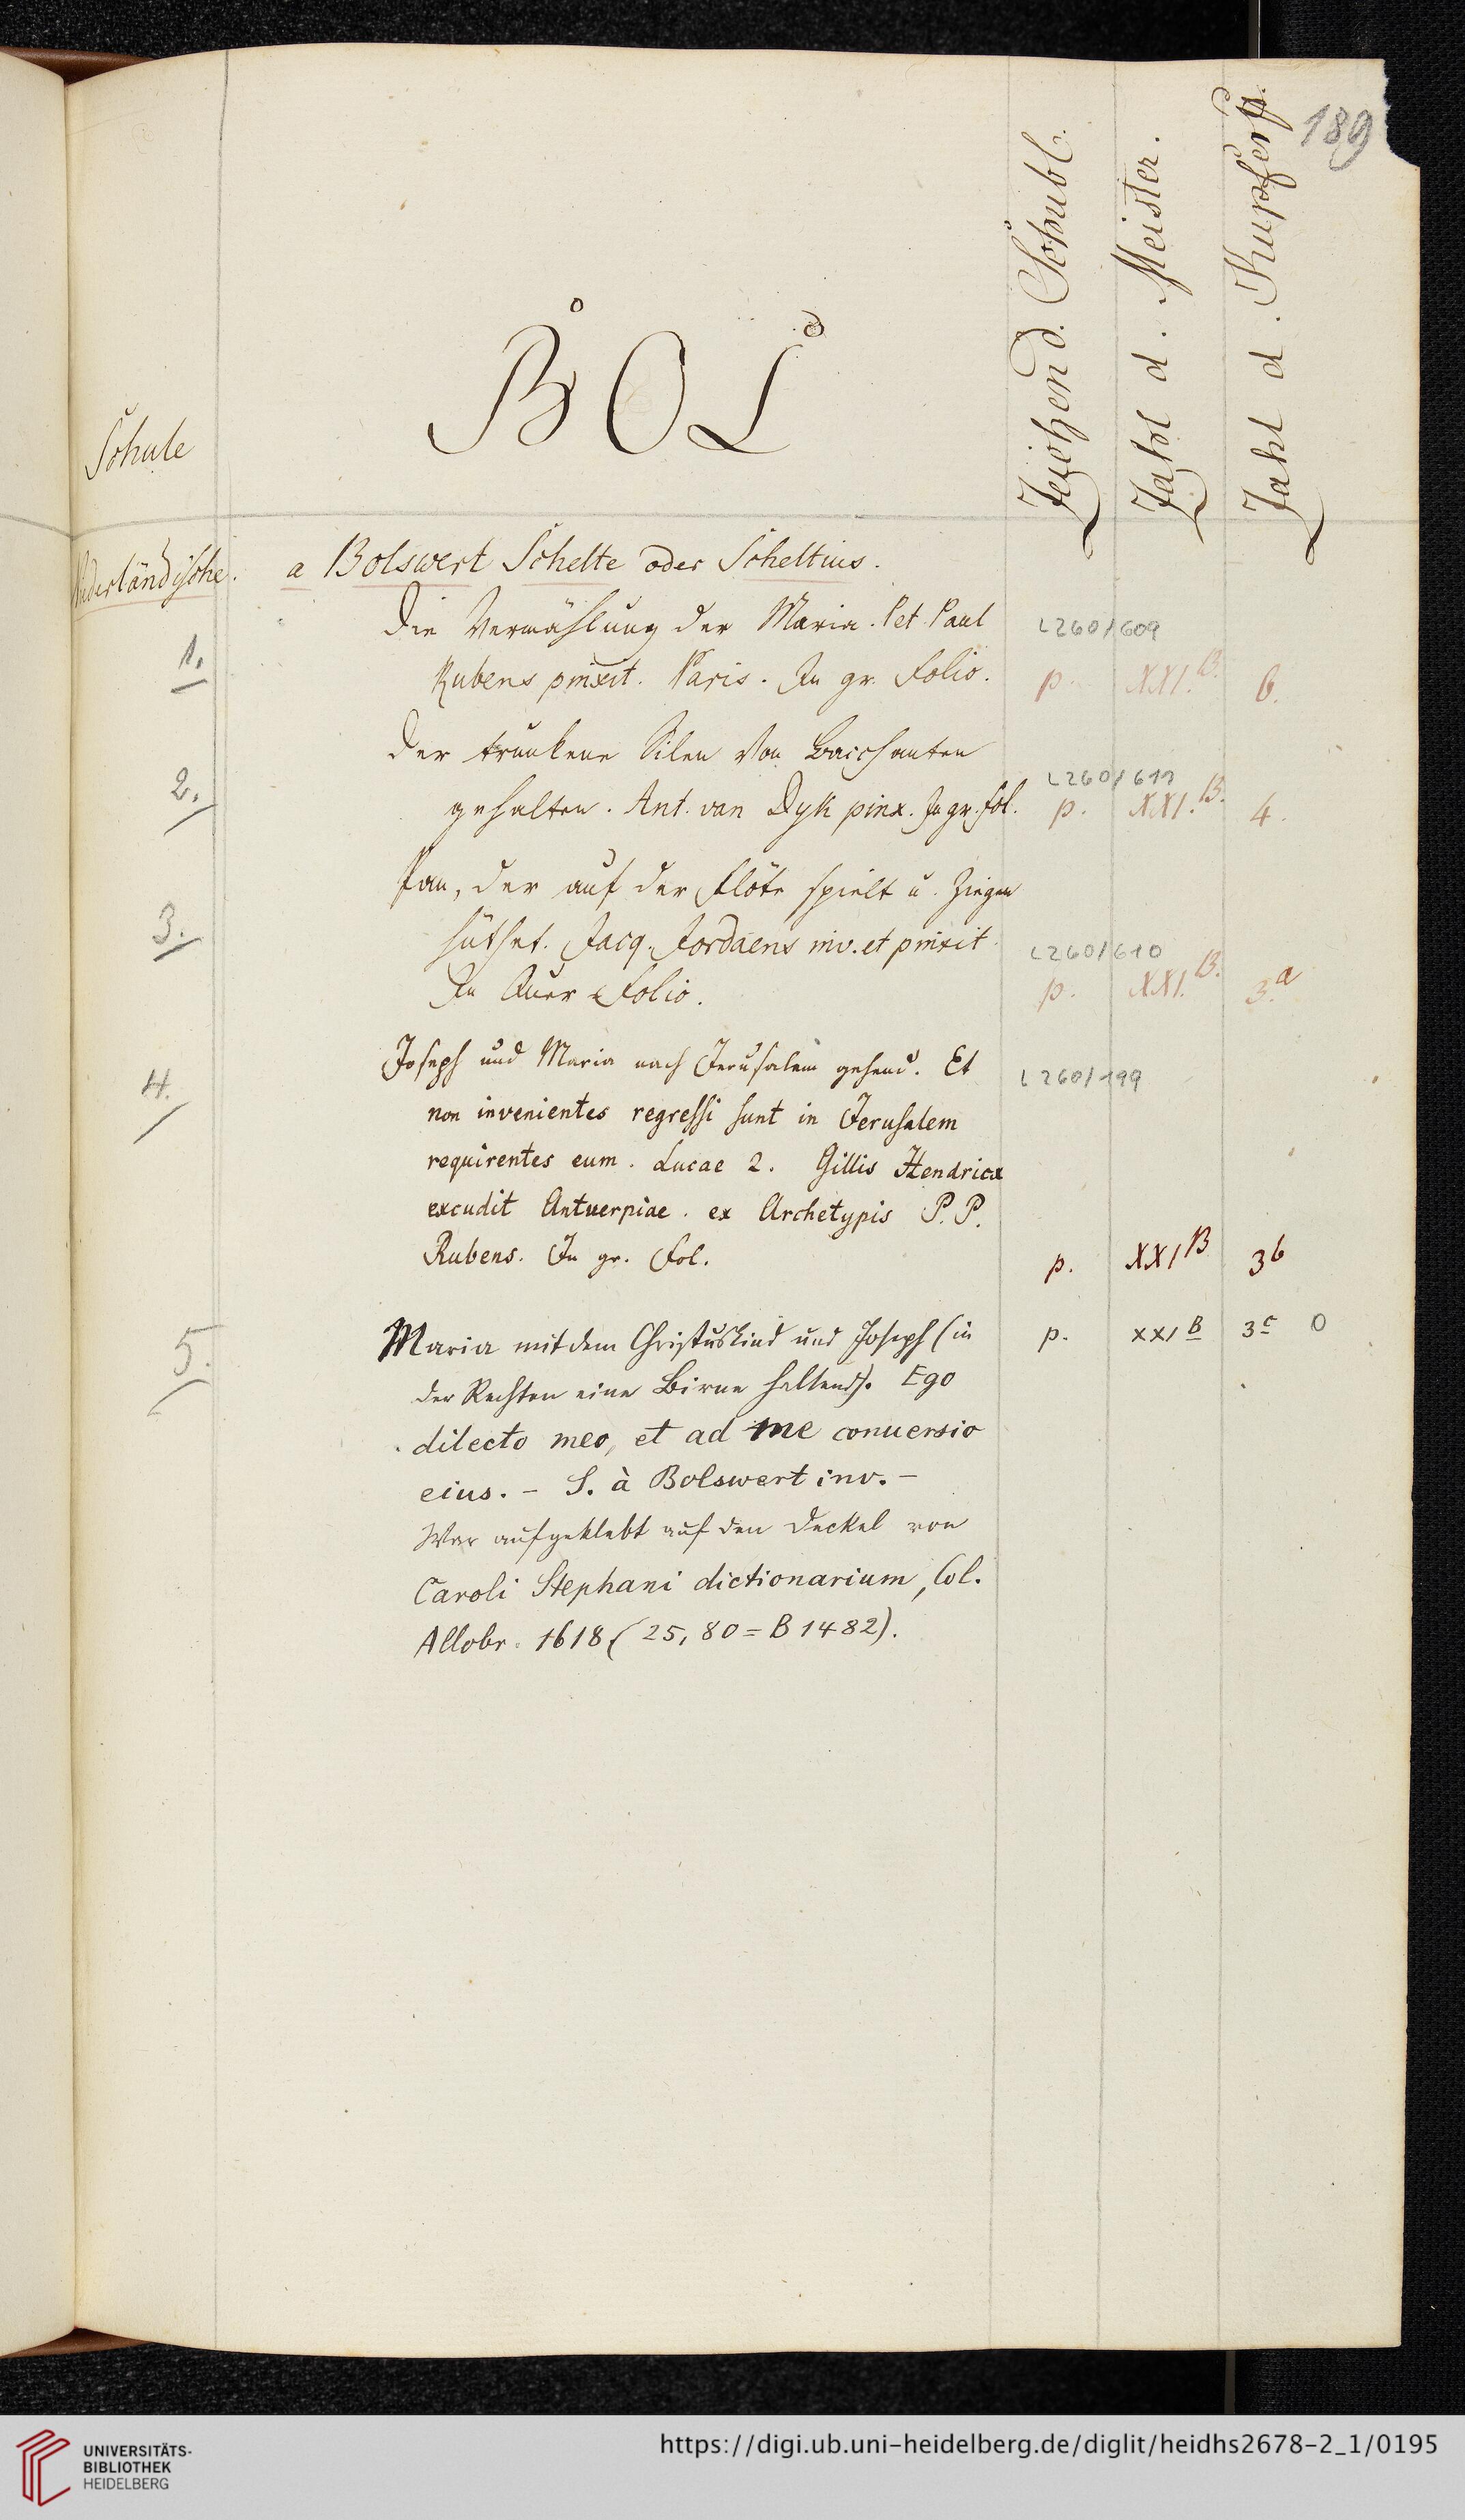 189
Zeichen d. Schubl.
Zahl d. Meister.
Zahl d. Kupferst.
BOL
Schule
Niederländische.
a Bolswert Schelte oder Scheltius.
1. Die Vermählung der Maria. Pet. Paul L260/609
Rubens pinxit. Paris. In gr. Folio. p. XXI.B. 6.
2. Der trunkene Silen von Bacchanten L260/611
gehalten. Ant. van Dyk pinx. In gr. Fol. p. XXI.B. 4.
3. Pan, der auf der Flöte spielt u. Ziegen
hüthet. Jacq. Jordaens inv. et pinxit. L260/610
In Quer Folio. p. XXI.B. 3.a
4. Joseph und Maria nach Jerusalem gehend. Et L260/199
non invenientes regressi sunt in Jerusalem
requirentes eum. Lucae 2. Gillis Hendricx
excudit Antuerpiae. ex Archetypis P. P.
Rubens. In gr. Fol. p. XXI B 3b
5. Maria mit dem Christuskind und Joseph (in p. XXI B 3c O
der Rechten eine Birne haltend). Ego
dilecto meo, et ad me conuersio
eius. – S. à Bolswert inv. –
War aufgeklebt auf den Deckel von
Caroli Stephani dictionarium, Col.
Allobr. 1618 (25,80 = B 1482).
UNIVERSITÄTS-
BIBLIOTHEK
HEIDELBERG
https://digi.ub.uni-heidelberg.de/diglit/heidhs2678-2_1/0195